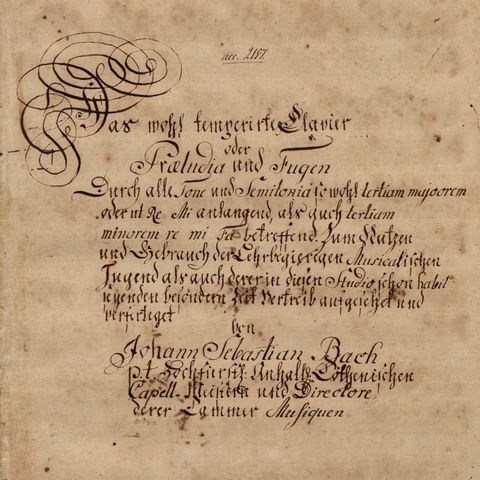 acc. 2157.
Das wohl temperirte Clavier
oder
Præludia und Fugen
Durch alle Tone und Semitonia so wohl tertiam majorem
oder ut Re Mi anlangend, als auch tertiam
minorem re mi Fa betreffend. Zum Nutzen
und Gebrauch der Lehrbegierigen Musicalischen
Jugend als auch derer in diesem Studio schon habil
seyenden besondern Zeit Vertreib aufgesetzet und
verfertiget
von
Johann Sebastian Bach
p. t. Hochfürstl. Anhalt. Cöthenischen
Capell-Meistern und Directore
derer Cammer Musiquen